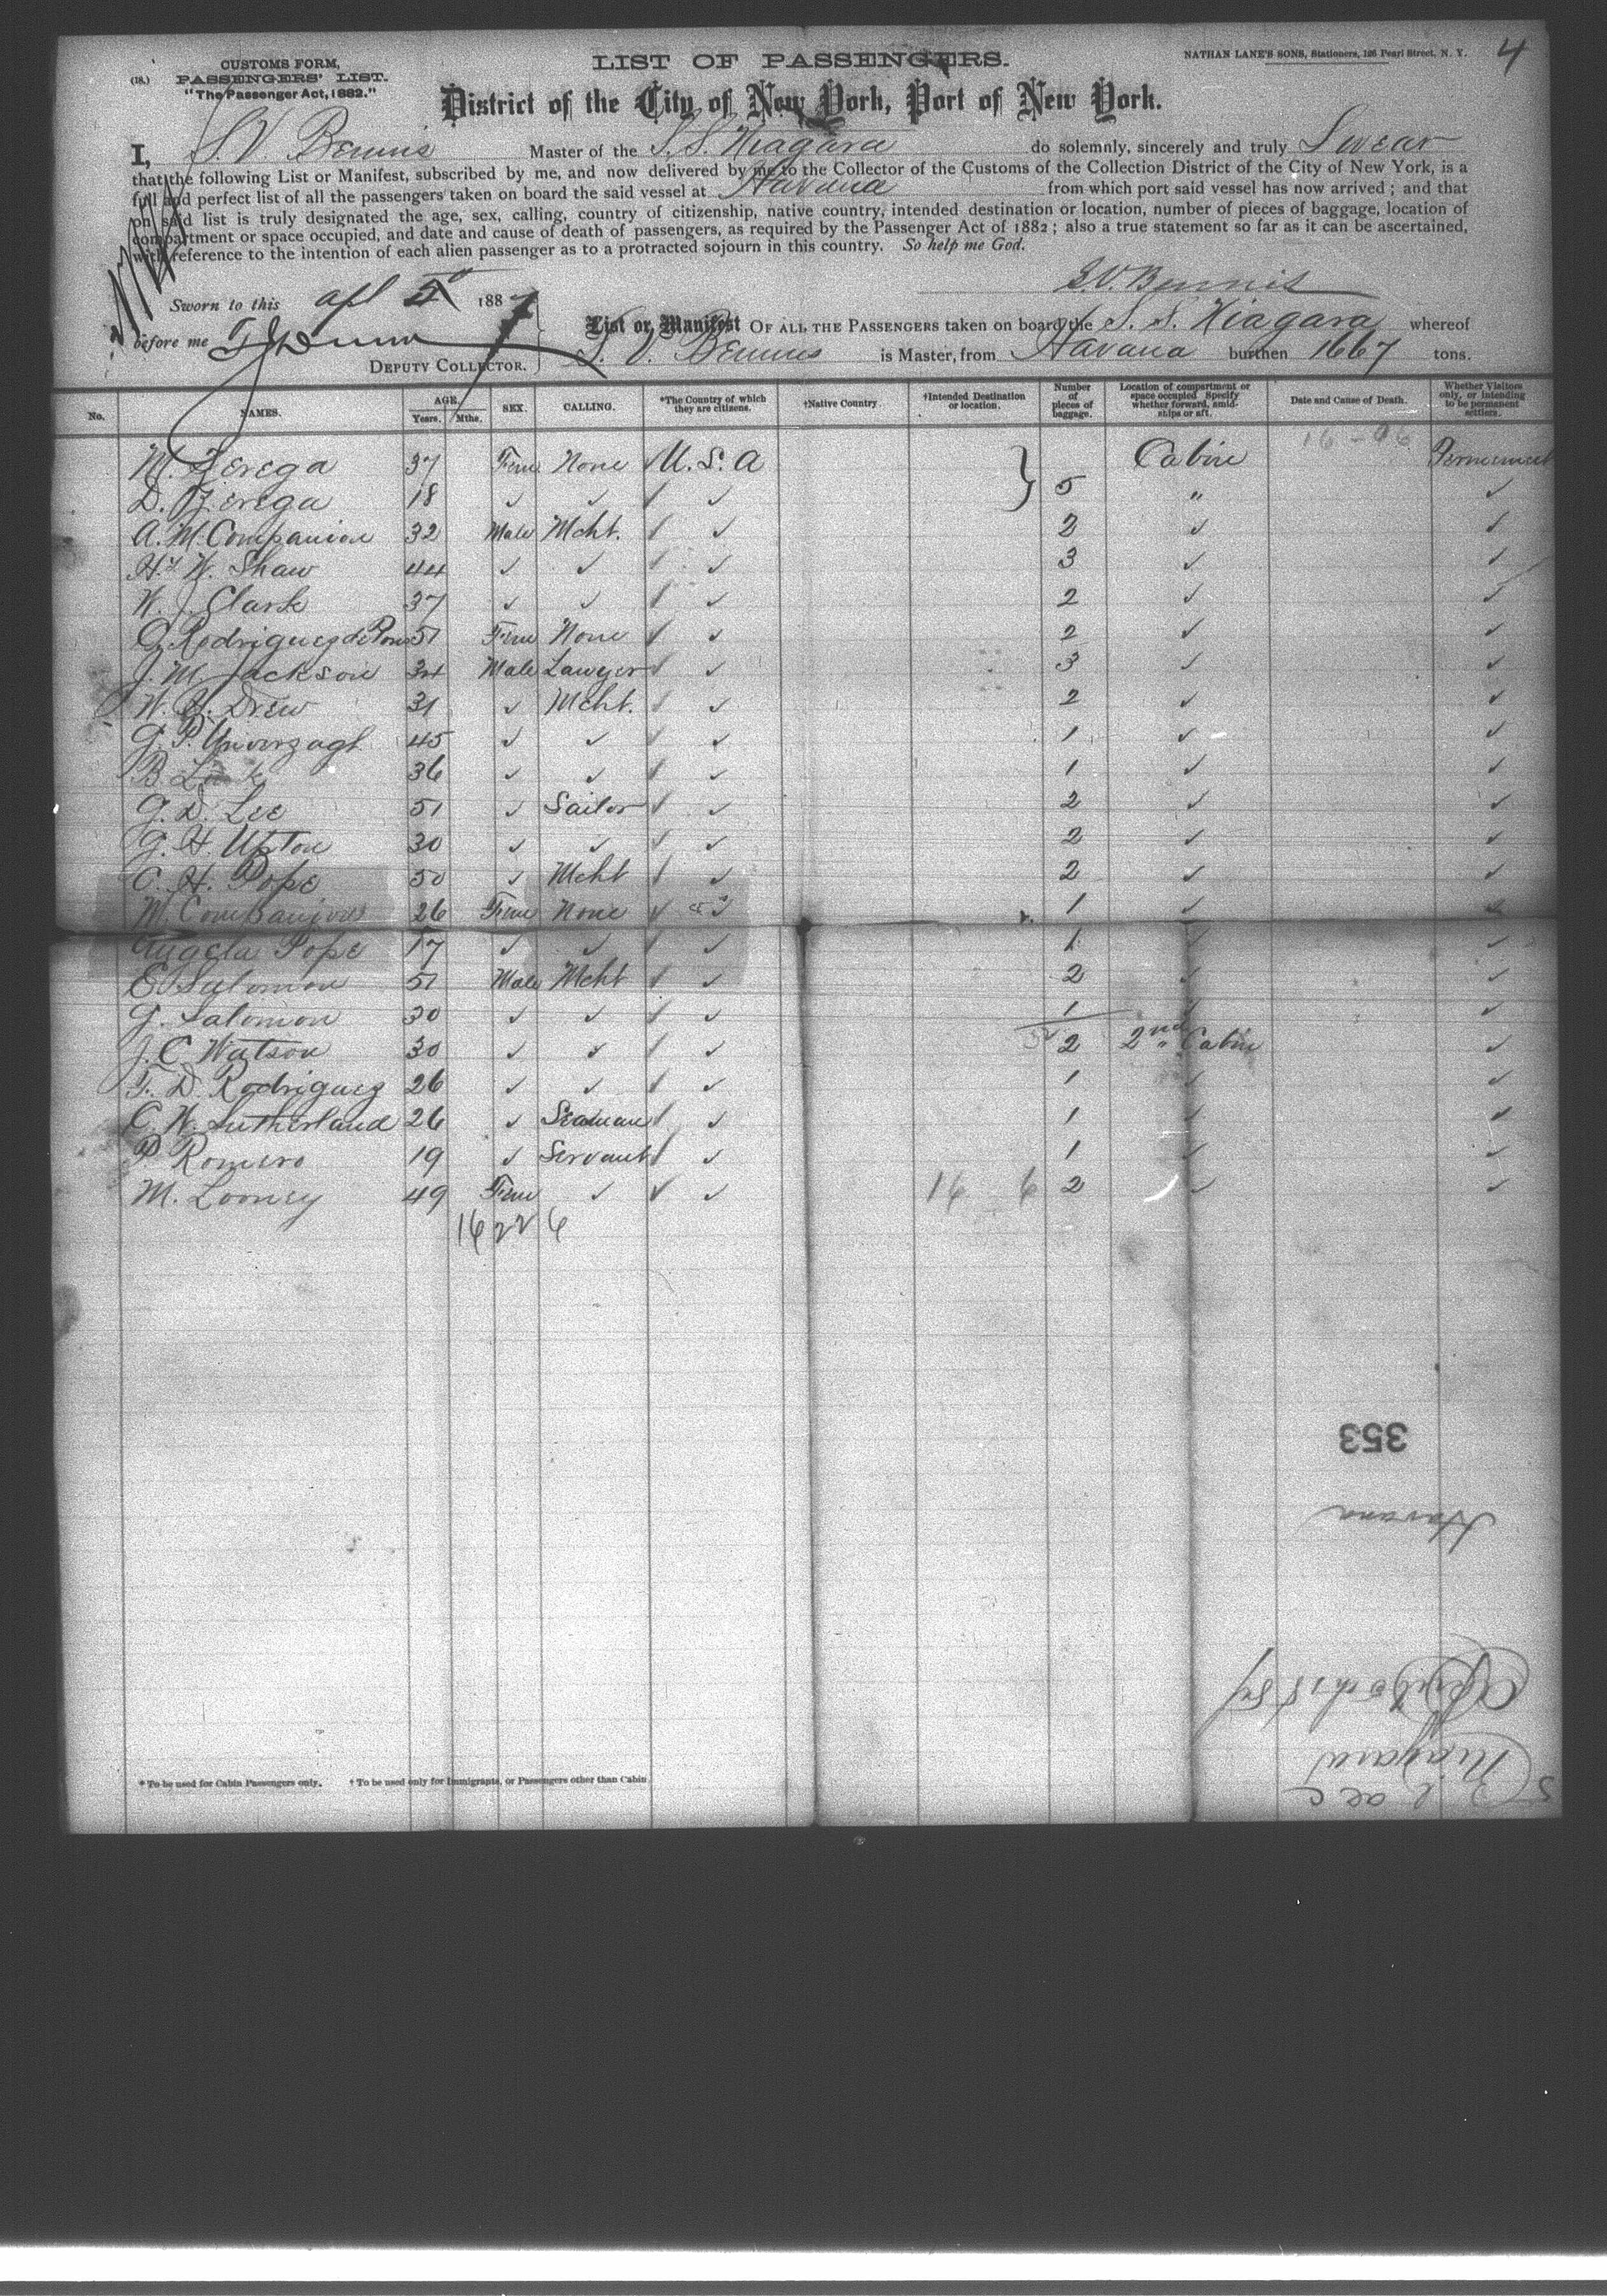 4
(18.)
CUSTOMS FORM,
PASSENGERS' LIST.
"The Passenger Act, 1882."
LIST OF PASSENGERS.
NATHAN LANE'S SONS, Stationers, 126 Pearl Street, N. Y.
District of the City of New York, Port of New York.
I, S. V. Bennis Master of the S. S. Niagara do solemnly, sincerely and truly Swear
that the following List or Manifest, subscribed by me, and now delivered by me to the Collector of the Customs of the Collection District of the City of New York, is a
full and perfect list of all the passengers taken on board the said vessel at Havana from which port said vessel has now arrived; and that
on said list is truly designated the age, sex, calling, country of citizenship, native country, intended destination or location, number of pieces of baggage, location of
compartment or space occupied, and date and cause of death of passengers, as required by the Passenger Act of 1882; also a true statement so far as it can be ascertained,
with reference to the intention of each alien passenger as to a protracted sojourn in this country. So help me God.
S. V. Bennis
Sworn to this apl 5 1887
before me
DEPUTY COLLECTOR.
List or Manifest OF ALL THE PASSENGERS taken on board the S. S. Niagara whereof
S. V. Bennis is Master, from Havana burthen 1667 tons.
No. NAMES. AGE. Years. Mths. SEX. CALLING. *The Country of which they are citizens. †Native Country. †Intended Destination or location. Number of pieces of baggage. Location of compartment or space occupied. Specify whether forward, amidships or aft. Date and Cause of Death. Whether Visitors only, or intending to be permanent settlers.
M. Zerega 37 Fem None U. S. A Cabin Permanent
D. Zerega 18 ✓ ✓ ✓ 5 " ✓
A. M. Companion 32 Male Mcht. ✓ 2 ✓ ✓
Hy W. Shaw 44 ✓ ✓ ✓ 3 ✓ ✓
W. J. Clark 37 ✓ ✓ ✓ 2 ✓ ✓
Rodriguez de Pons 51 Fem None ✓ 2 ✓ ✓
J. M. Jackson 34 Male Lawyer ✓ 3 ✓ ✓
W. Drew 31 ✓ Mcht. ✓ 2 ✓ ✓
G. P. Unverzagt 45 ✓ ✓ ✓ 1 ✓ ✓
B. 36 ✓ ✓ ✓ 1 ✓ ✓
G. D. Lee 51 ✓ Sailor ✓ 2 ✓ ✓
G. H. Upton 30 ✓ ✓ ✓ 2 ✓ ✓
C. H. Pope 50 ✓ Mcht ✓ 2 ✓ ✓
M. Companion 26 Fem None ✓ 1 ✓ ✓
Angela Pope 17 ✓ ✓ ✓ 1 ✓ ✓
E. Salomon 51 Male Mcht ✓ 2 ✓ ✓
G. Salomon 30 ✓ ✓ ✓ 1 ✓ ✓
J. C. Watson 30 ✓ ✓ ✓ 2 2nd Cabin ✓
F. D. Rodriguez 26 ✓ ✓ ✓ 1 ✓ ✓
C. W. Sutherland 26 ✓ Seaman ✓ 1 ✓ ✓
P. Romero 19 ✓ Servant ✓ 1 ✓ ✓
M. Looney 49 Fem ✓ ✓ 16 6 2 ✓ ✓
16 22 6
353
Havana
April 5th 1887
Niagara
* To be used for Cabin Passengers only. † To be used only for Immigrants, or Passengers other than Cabin